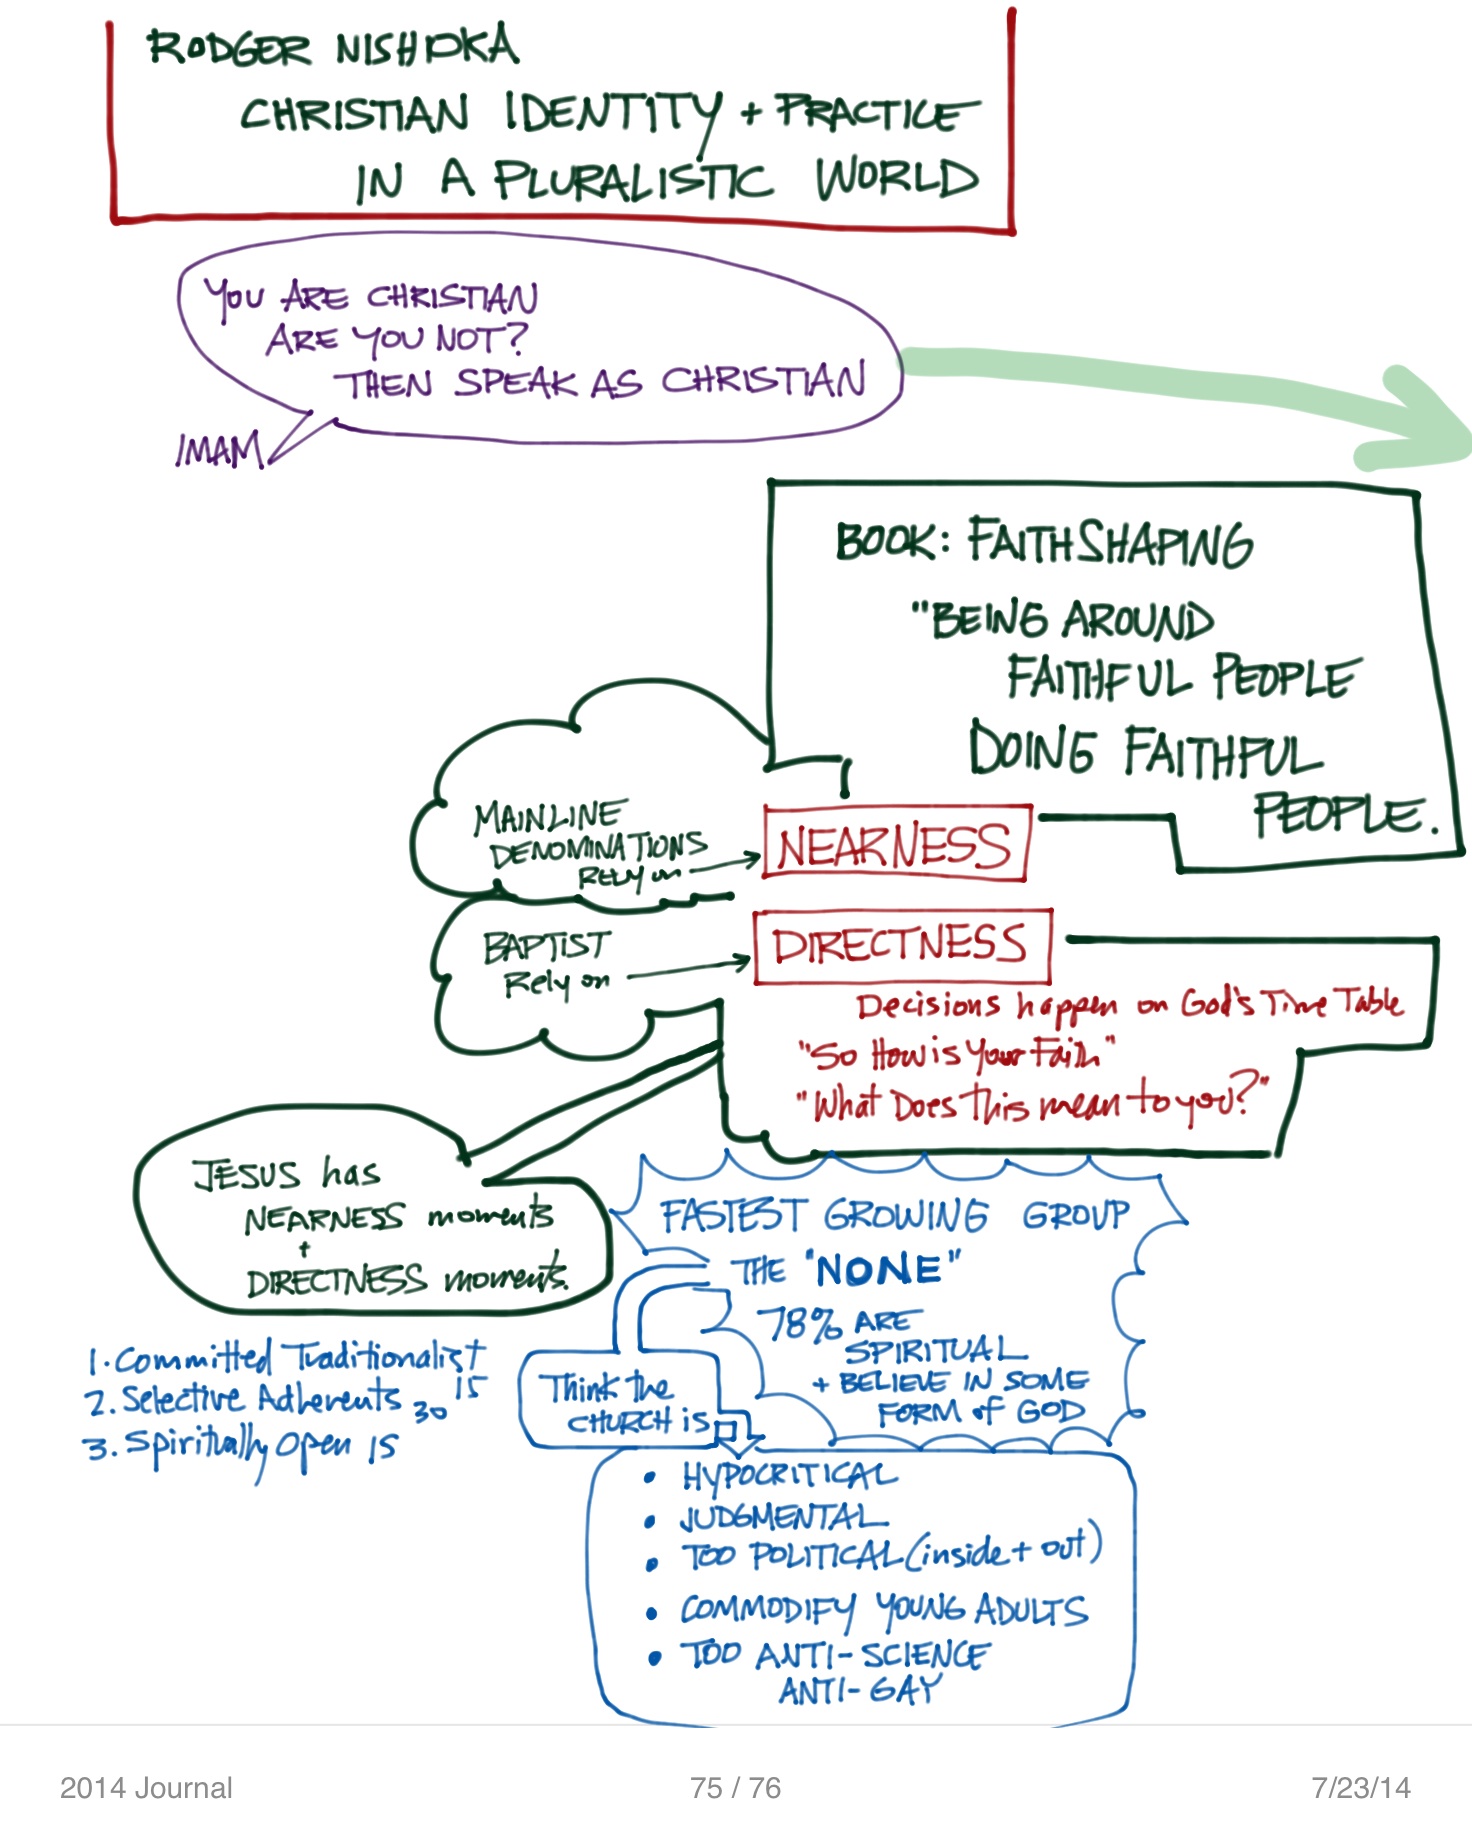 RODGER NISHIOKA
CHRISTIAN IDENTITY + PRACTICE
IN A PLURALISTIC WORLD
YOU ARE CHRISTIAN
ARE YOU NOT?
THEN SPEAK AS CHRISTIAN
IMAM
BOOK: FAITHSHAPING
"BEING AROUND
FAITHFUL PEOPLE
DOING FAITHFUL
PEOPLE.
MAINLINE
DENOMINATIONS
RELY on
NEARNESS
BAPTIST
Rely on
DIRECTNESS
Decisions happen on God's Time Table
"So How is Your Faith"
"What Does This mean to you?"
JESUS has
NEARNESS moments
+
DIRECTNESS moments.
FASTEST GROWING GROUP
THE "NONE"
78% ARE
SPIRITUAL
+ BELIEVE IN SOME
FORM of GOD
1. Committed Traditionalist
15
2. Selective Adherents 30
3. Spiritually Open 15
Think the
CHURCH is
• HYPOCRITICAL
• JUDGMENTAL
• TOO POLITICAL (inside + out)
• COMMODIFY YOUNG ADULTS
• TOO ANTI-SCIENCE
ANTI-GAY
2014 Journal
75 / 76
7/23/14